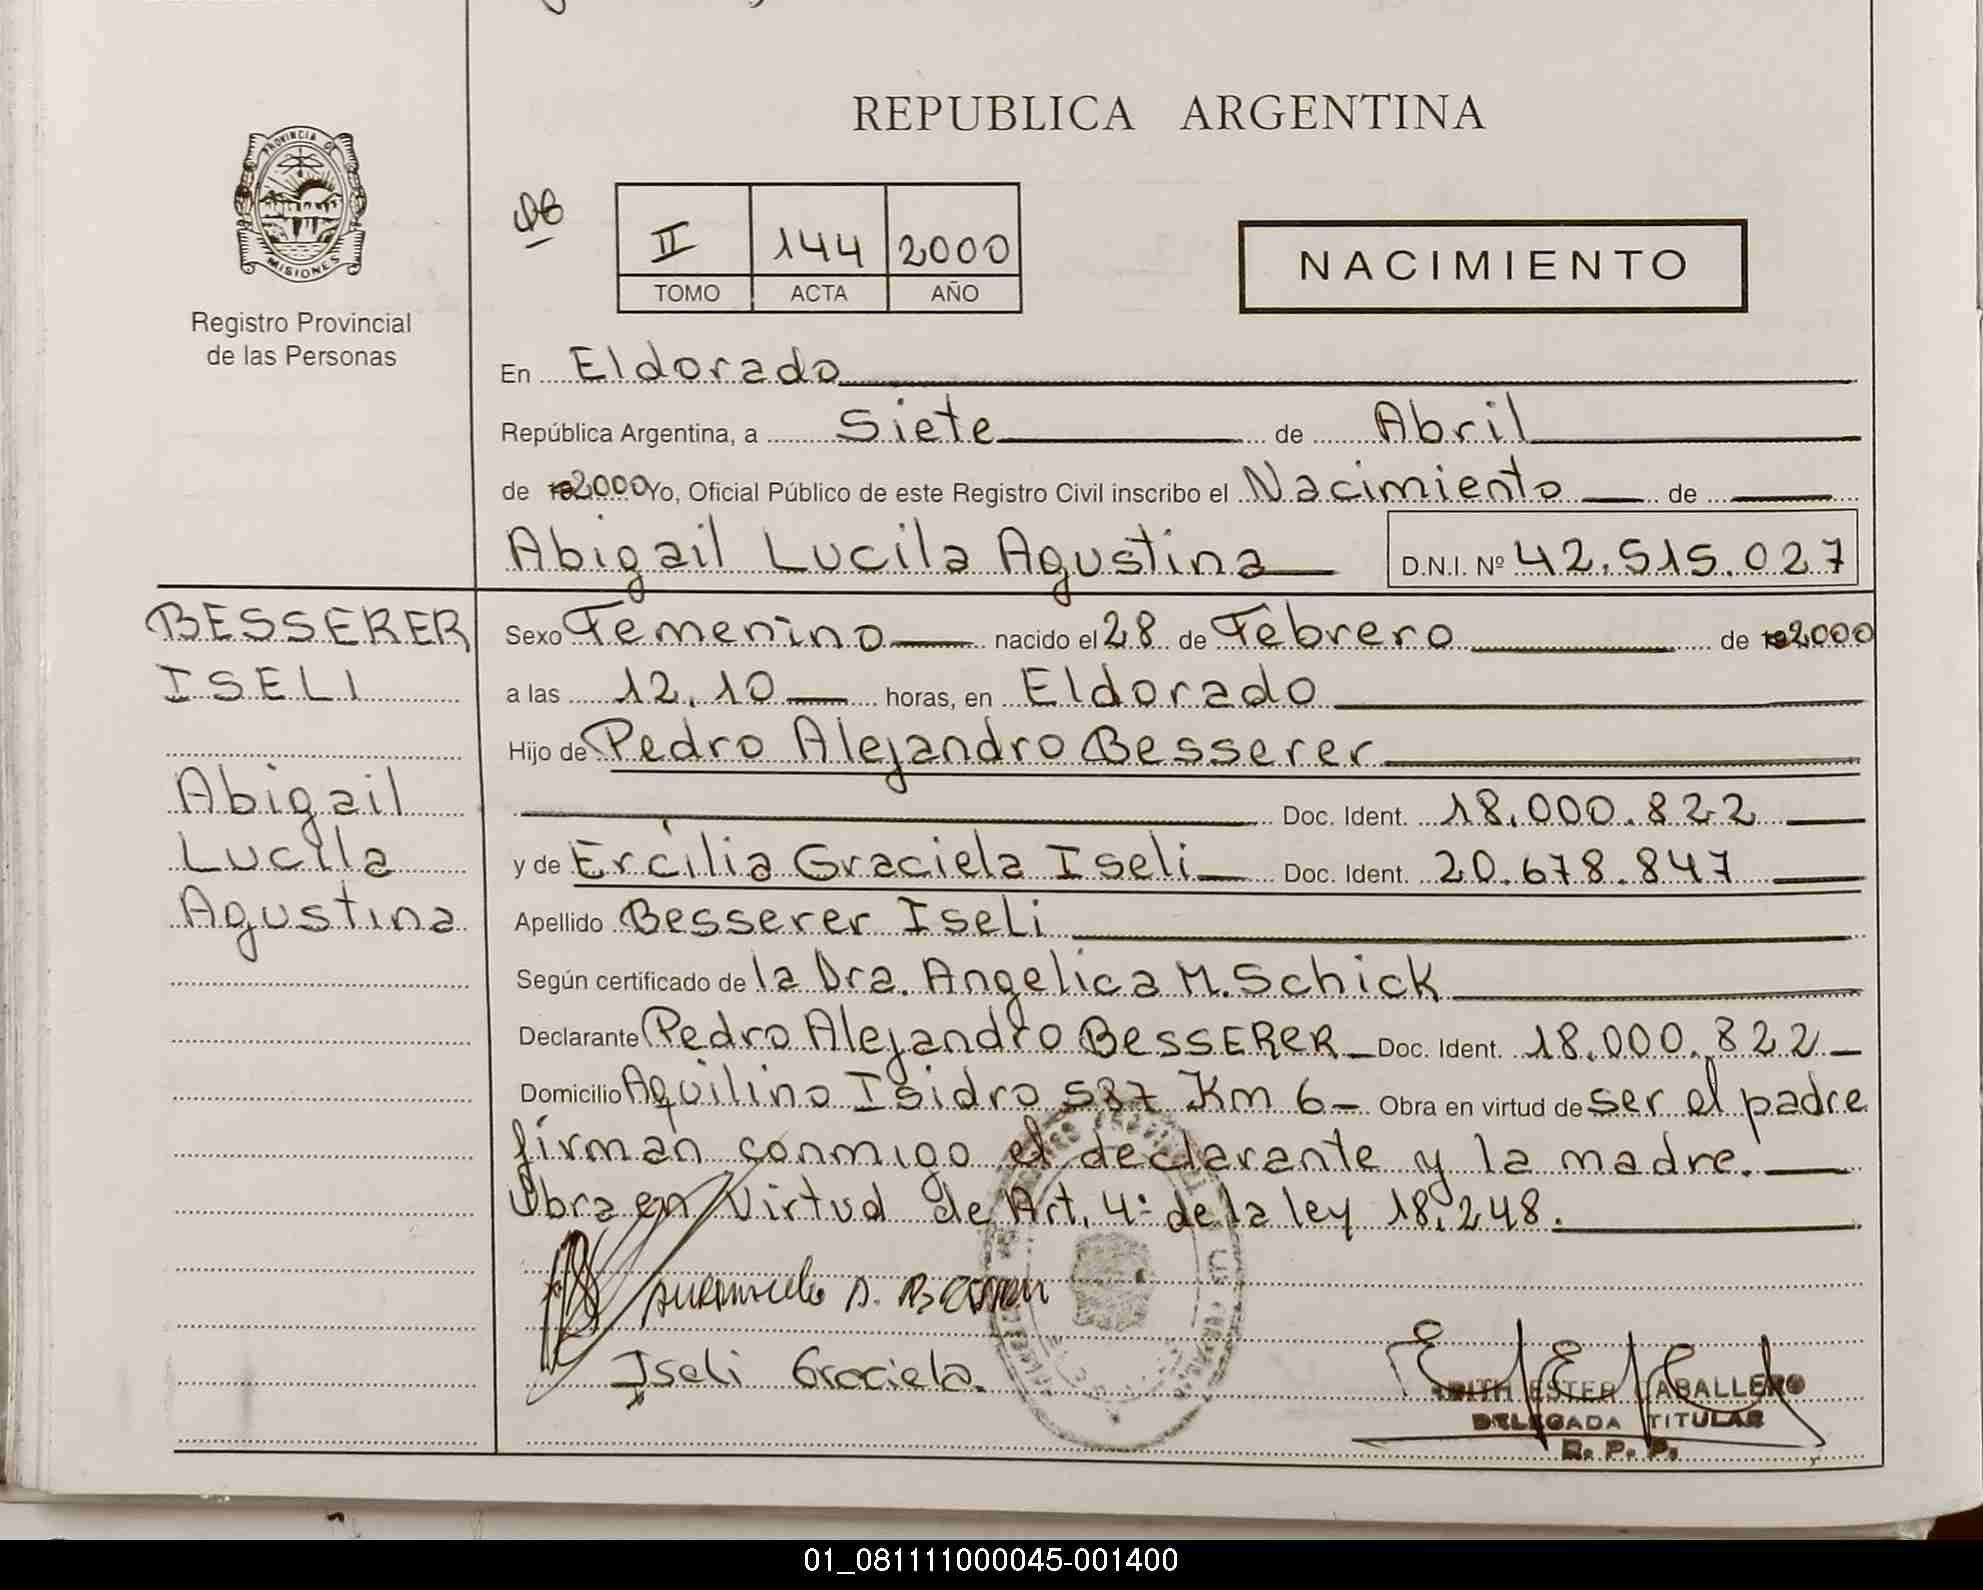 REPUBLICA ARGENTINA
PROVINCIA DE
MISIONES
Registro Provincial
de las Personas
II 144 2000
TOMO ACTA AÑO
NACIMIENTO
En Eldorado
República Argentina, a Siete de Abril
de 2000 Yo, Oficial Público de este Registro Civil inscribo el Nacimiento de
Abigail Lucila Agustina D.N.I. Nº 42.515.027
BESSERER
ISELI
Abigail
Lucila
Agustina
Sexo Femenino nacido el 28 de Febrero de 2000
a las 12.10 horas, en Eldorado
Hijo de Pedro Alejandro Besserer
Doc. Ident. 18.000.822
y de Ercilia Graciela Iseli Doc. Ident. 20.678.847
Apellido Besserer Iseli
Según certificado de la Dra. Angelica M. Schick
Declarante Pedro Alejandro BESSERER Doc. Ident. 18.000.822
Domicilio Aquilino Isidro 587 Km 6 Obra en virtud de ser el padre
firman conmigo el declarante y la madre.
Obra en Virtud de Art. 4º de la ley 18.248.
Iseli Graciela.
EDITH ESTER CABALLERO
DELEGADA TITULAR
R. P. P.
01_081111000045-001400